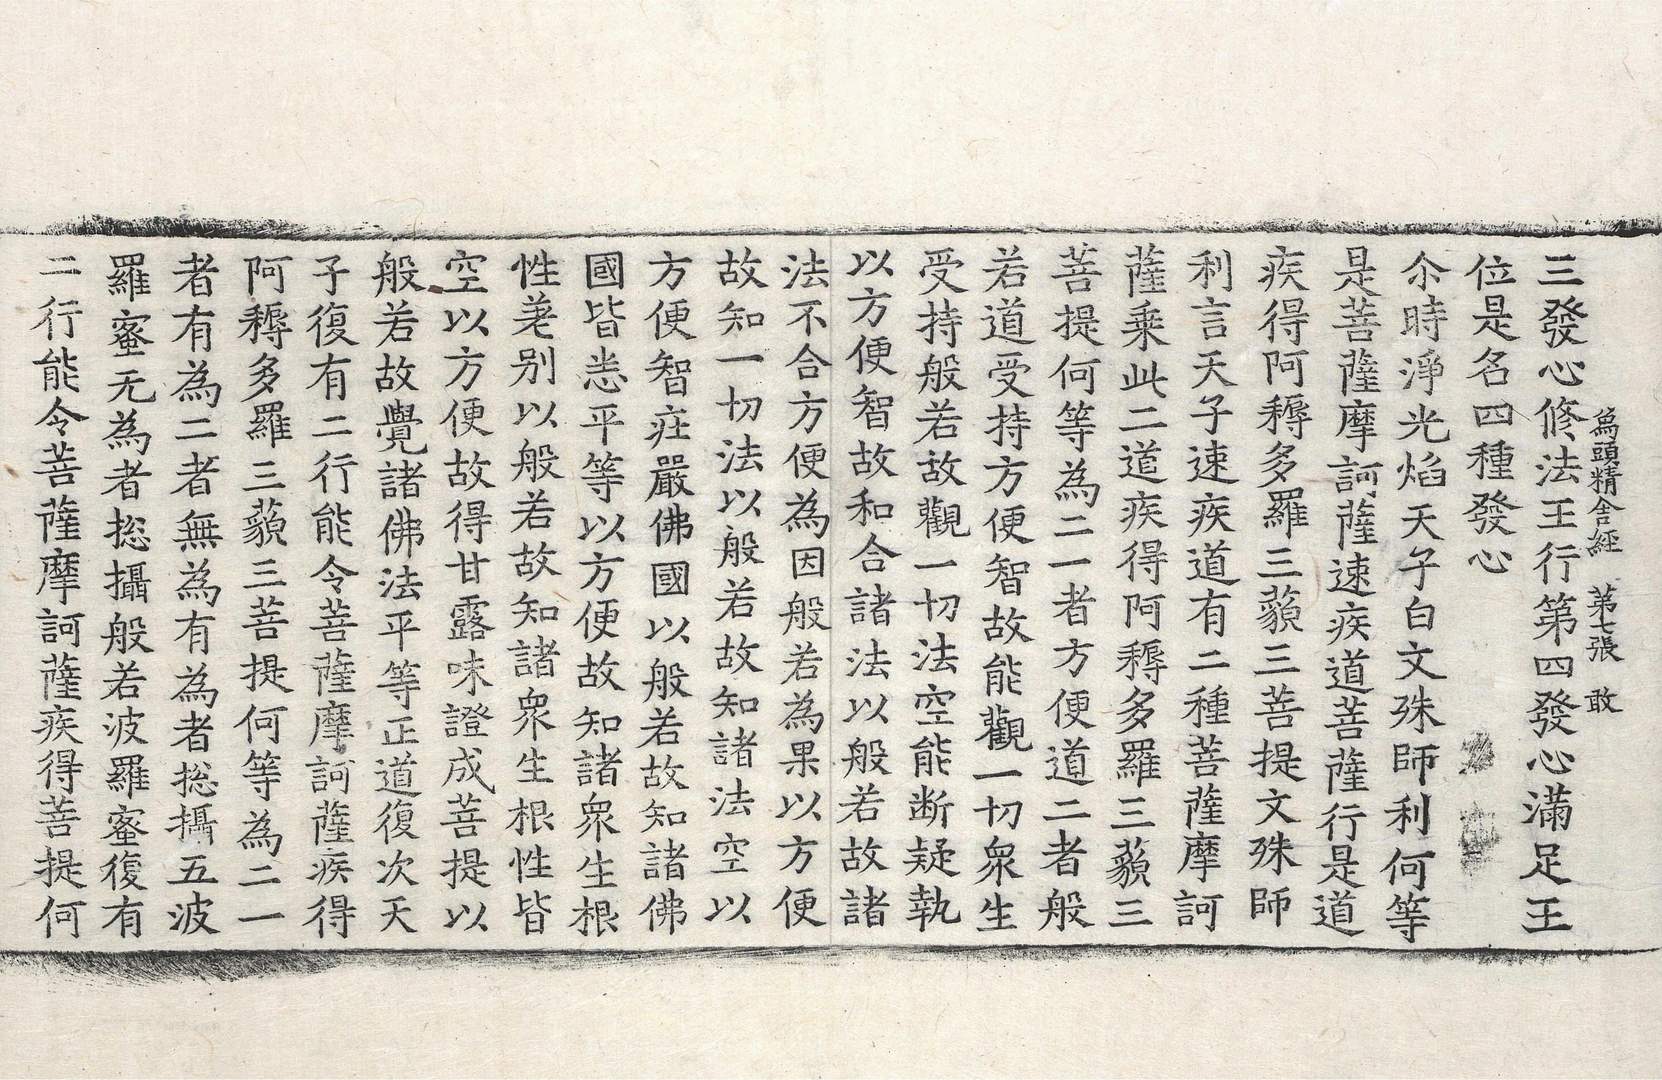 爲頭精舍經 第七張 敢
三發心修法王行第四發心滿足王
位是名四種發心
尒時淨光焰天子白文殊師利何等
是菩薩摩訶薩速疾道菩薩行是道
疾得阿耨多羅三藐三菩提文殊師
利言天子速疾道有二種菩薩摩訶
薩乘此二道疾得阿耨多羅三藐三
菩提何等為二一者方便道二者般
若道受持方便智故能觀一切衆生
受持般若故觀一切法空能断疑執
以方便智故和合諸法以般若故諸
法不合方便為因般若為果以方便
故知一切法以般若故知諸法空以
方便智莊嚴佛國以般若故知諸佛
國皆悉平等以方便故知諸衆生根
性差别以般若故知諸衆生根性皆
空以方便故得甘露味證成菩提以
般若故覺諸佛法平等正道復次天
子復有二行能令菩薩摩訶薩疾得
阿耨多羅三藐三菩提何等為二一
者有為二者無為有為者捴攝五波
羅蜜无為者捴攝般若波羅蜜復有
二行能令菩薩摩訶薩疾得菩提何